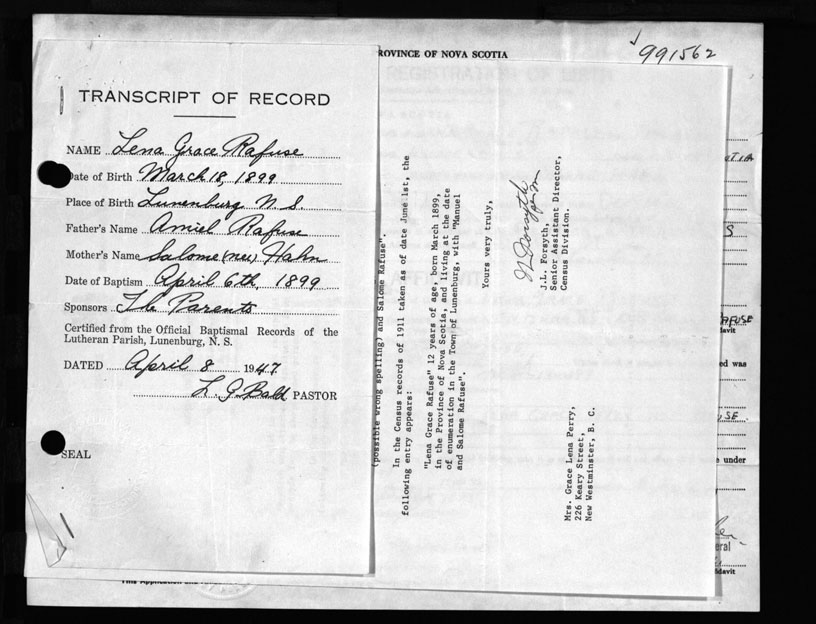 ROVINCE OF NOVA SCOTIA
991562
TRANSCRIPT OF RECORD
NAME Lena Grace Rafuse
Date of Birth March 18, 1899
Place of Birth Lunenburg N. S.
Father's Name Amiel Rafuse
Mother's Name Salome (nee) Hahn
Date of Baptism April 6th, 1899
Sponsors The Parents
Certified from the Official Baptismal Records of the
Lutheran Parish, Lunenburg, N. S.
DATED April 8 1947
L G Bald PASTOR
SEAL
(possible wrong spelling) and Salome Rafuse".
In the Census records of 1911 taken as of date June 1st, the
following entry appears:
"Lena Grace Rafuse" 12 years of age, born March 1899,
in the Province of Nova Scotia, and living at the date
of enumeration in the Town of Lunenburg, with "Manuel
and Salome Rafuse".
Yours very truly,
J.L. Forsyth,
Senior Assistant Director,
Census Division.
Mrs. Grace Lena Perry,
226 Keary Street,
New Westminster, B. C.
S
AFUSE
davit
ed was
USE
e under
eral
davit
This Application and